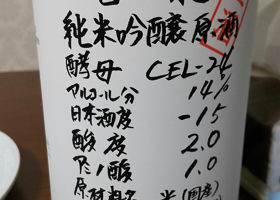 純米吟醸原酒
酵母 CEL-24
アルコール分 14%
日本酒度 -15
酸度 2.0
アミノ酸 1.0
原材料名 米(国産)